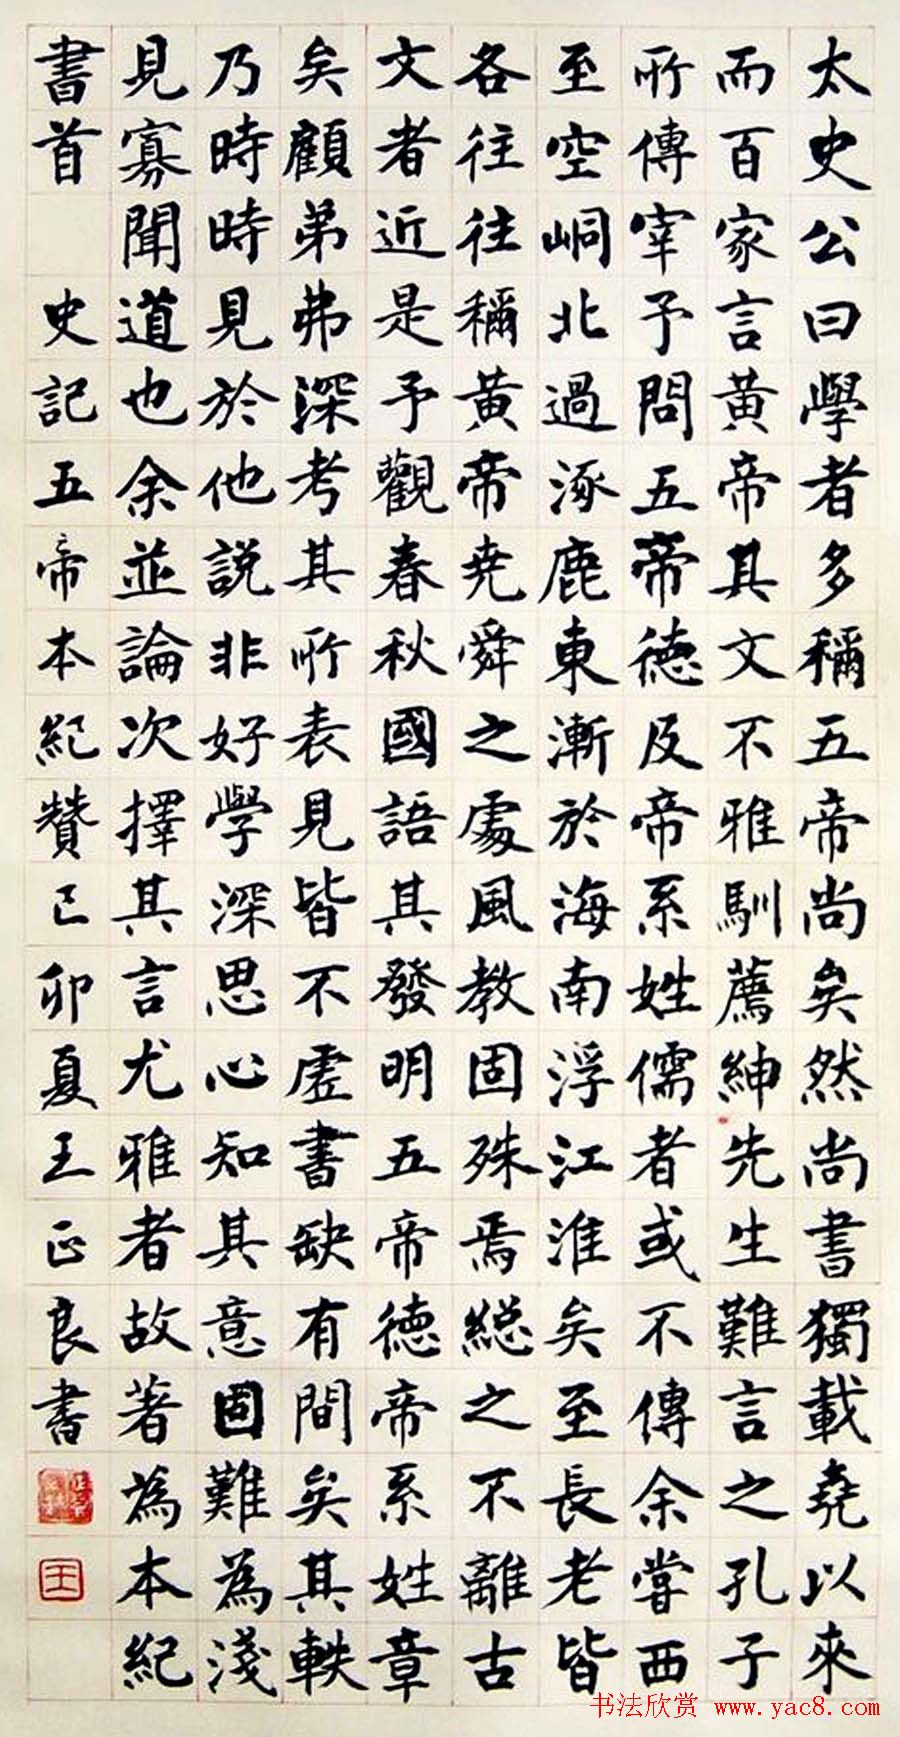 太史公曰學者多稱五帝尚矣然尚書獨載堯以來
而百家言黃帝其文不雅馴薦紳先生難言之孔子
所傳宰予問五帝德及帝系姓儒者或不傳余嘗西
至空峒北過涿鹿東漸於海南浮江淮矣至長老皆
各往往稱黃帝堯舜之處風教固殊焉總之不離古
文者近是予觀春秋國語其發明五帝德帝系姓章
矣顧弟弗深考其所表見皆不虛書缺有間矣其軼
乃時時見於他說非好學深思心知其意固難為淺
見寡聞道也余並論次擇其言尤雅者故著為本紀
書首 史記五帝本紀贊己卯夏王正良書
王
书法欣赏 www.yac8.com